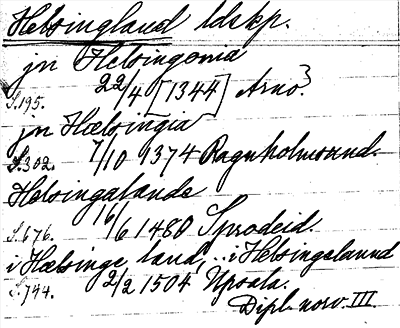 Helsingland ldskp.
jn Helsingonia
S.195. 22/4 [1344] Arnö.
jn Hælsingia
S.302. 7/10 1374 Ragnholmsund.
Helsingalandz
S.676. 16/6 1480 Sprodeid.
i Hælsinge land, .. i Helsingelannd
S.744. 2/2 1504 Upsala.
Dipl. norv. III.